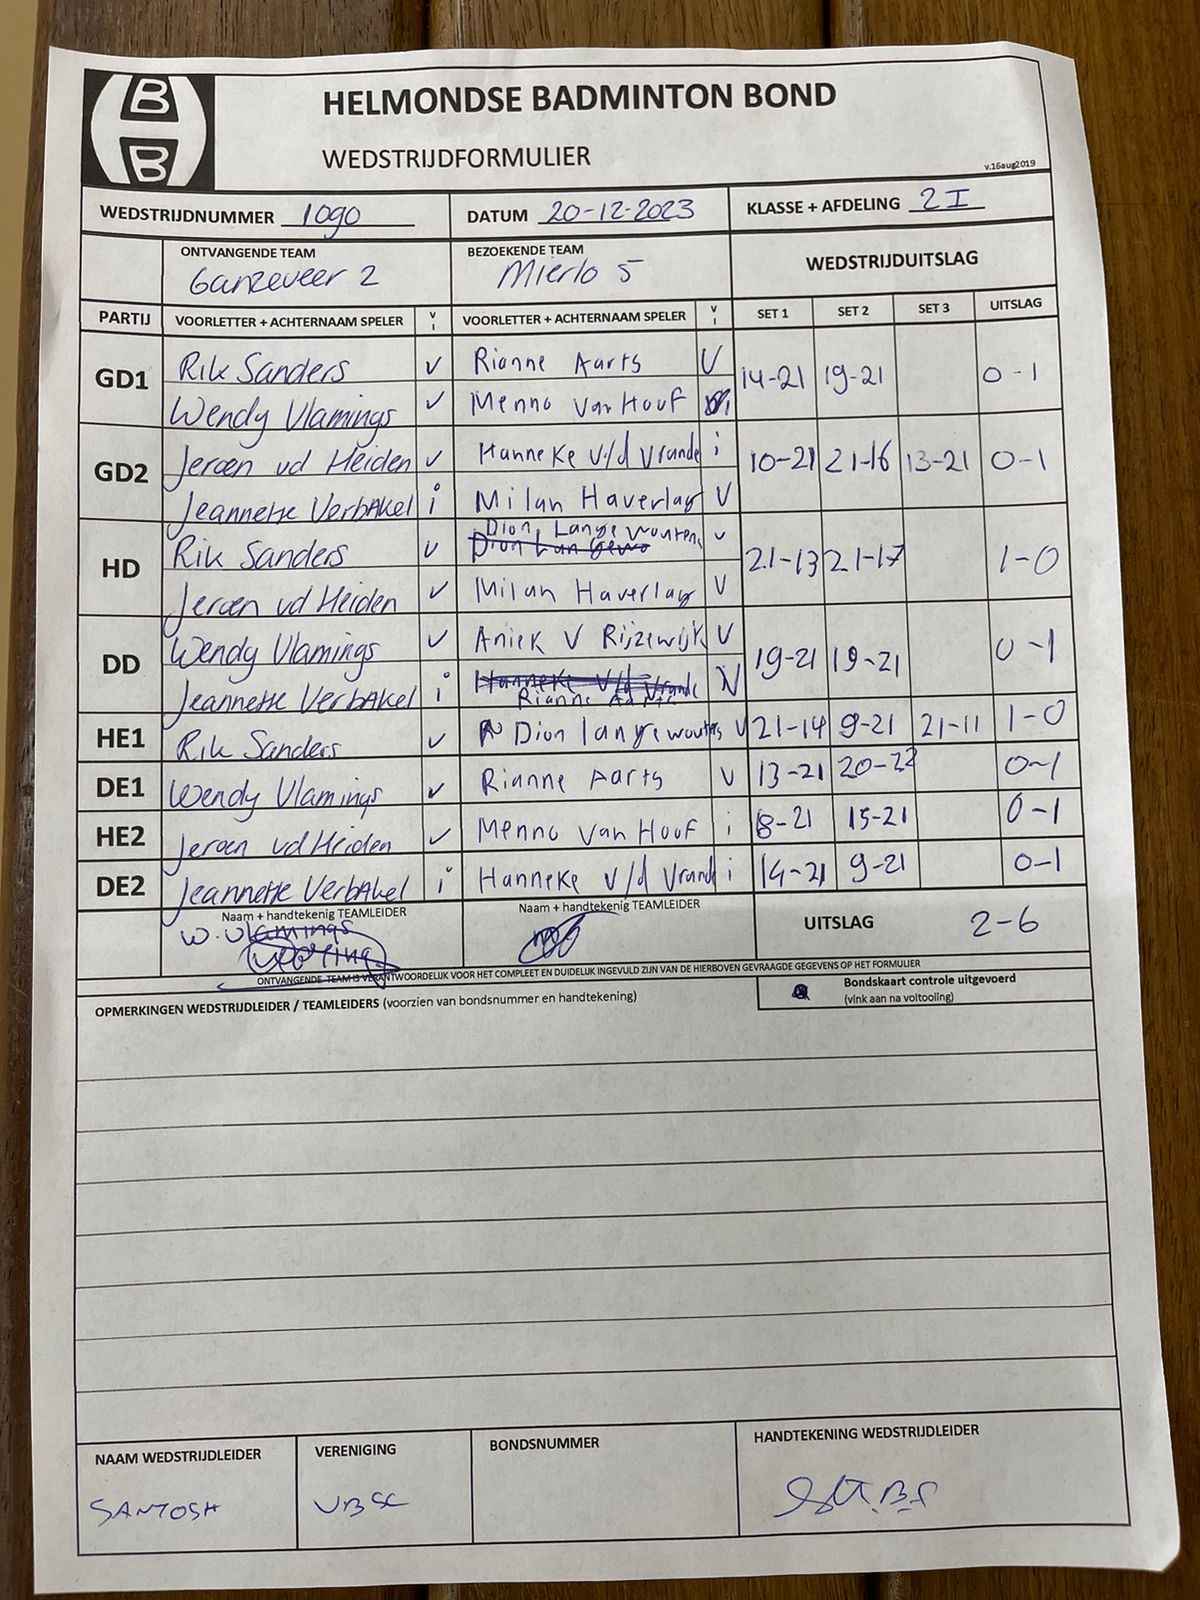 B
B
HELMONDSE BADMINTON BOND
WEDSTRIJDFORMULIER
v.16aug2019
WEDSTRIJDNUMMER 1090 DATUM 20-12-2023 KLASSE + AFDELING 2 I
ONTVANGENDE TEAM BEZOEKENDE TEAM WEDSTRIJDUITSLAG
Ganzeveer 2 Mierlo 5
PARTIJ VOORLETTER + ACHTERNAAM SPELER V I VOORLETTER + ACHTERNAAM SPELER V I SET 1 SET 2 SET 3 UITSLAG
GD1 Rik Sanders v Rianne Aarts V 14-21 19-21 0-1
Wendy Vlamings v Menno van Hoof
GD2 Jeroen vd Heiden v Hanneke v/d Vrande i 10-21 21-16 13-21 0-1
Jeannette Verbakel i Milan Haverlag V
HD Rik Sanders v Dion Langewouters v 21-13 21-17 1-0
Jeroen vd Heiden v Milan Haverlag V
DD Wendy Vlamings v Aniek v Rijzewijk V 19-21 19-21 0-1
Jeannette Verbakel i Hanneke v/d Vrande V
Rianne Aarts
HE1 Rik Sanders v Dion langewouters V 21-14 9-21 21-11 1-0
DE1 Wendy Vlamings v Rianne Aarts V 13-21 20-22 0-1
HE2 Jeroen vd Heiden v Menno van Hoof i 8-21 15-21 0-1
DE2 Jeannette Verbakel i Hanneke v/d Vrande i 14-21 9-21 0-1
Naam + handtekenig TEAMLEIDER Naam + handtekenig TEAMLEIDER UITSLAG 2-6
W. Vlamings
ONTVANGENDE TEAM IS VERANTWOORDELIJK VOOR HET COMPLEET EN DUIDELIJK INGEVULD ZIJN VAN DE HIERBOVEN GEVRAAGDE GEGEVENS OP HET FORMULIER
OPMERKINGEN WEDSTRIJDLEIDER / TEAMLEIDERS (voorzien van bondsnummer en handtekening)
Bondskaart controle uitgevoerd
(vink aan na voltooling)
NAAM WEDSTRIJDLEIDER VERENIGING BONDSNUMMER HANDTEKENING WEDSTRIJDLEIDER
SANTOSH VBSC